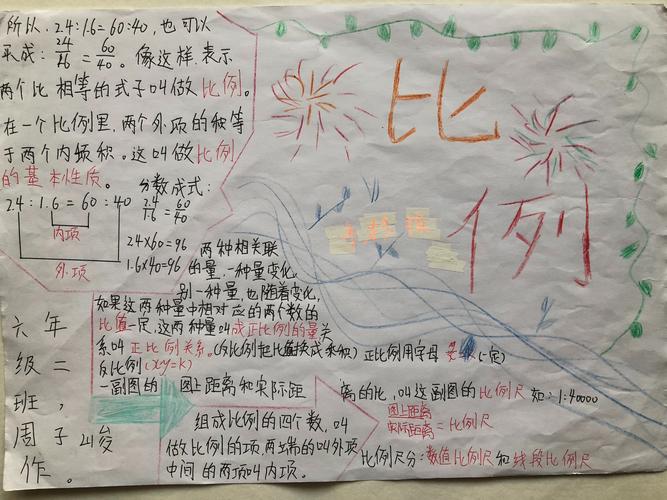 所以,2.4:1.6=60:40,也可以
写成:24/16=60/40。像这样,表示
两个比相等的式子叫做比例。
在一个比例里,两个外项的积等
于两个内项积。这叫做比例
的基本性质。
分数成式:
2.4:1.6=60:40
24/16=60/40
内项
外项
24×60=96
1.6×40=96
两种相关联
的量,一种量变化,
别一种量,也随着变化,
如果这两种量中相对应的两个数的
比值一定,这两种量叫成正比例的量关
系叫正比例关系。(反比例把比值换成乘积)正比例用字母
(一定)
反比例(xy=k)
一副图的图上距离和实际距
离的比,叫这副图的比例尺 如:1:40000
图上距离/实际距离=比例尺
组成比例的四个数,叫
做比例的项,两端的叫外项
中间的两项叫内项。
比例尺分:数值比例尺和线段比例尺
比
例
六年
级二
班,
周子
作。